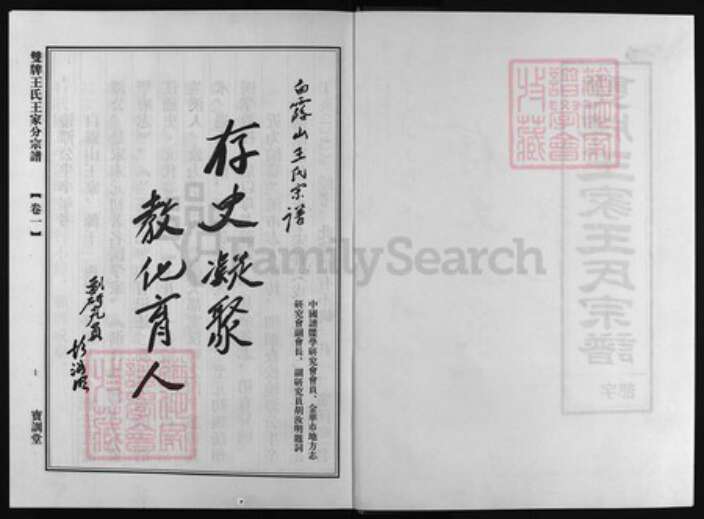 白露山王氏宗譜
存史凝聚
教化育人
副研究員
中國譜牒學研究會會員、金華市地方志
研究會副會長、副研究員胡汝明題詞
雙牌王氏王家分宗譜
【卷一】
寶訓堂
FamilySearch
王家王氏宗譜